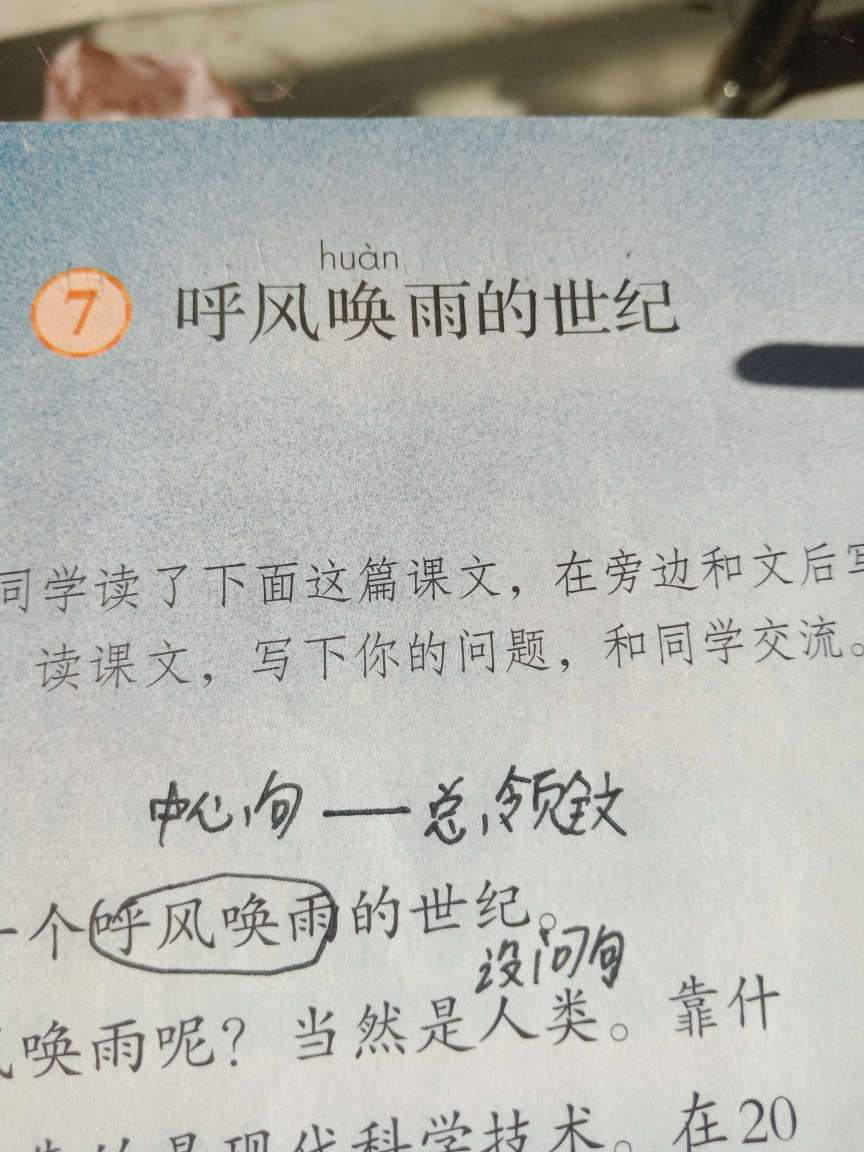 huàn
7 呼风唤雨的世纪
同学读了下面这篇课文，在旁边和文后写
读课文，写下你的问题，和同学交流。
中心句——总领全文
一个呼风唤雨的世纪。
设问句
唤雨呢？当然是人类。靠什
是现代科学技术。在20